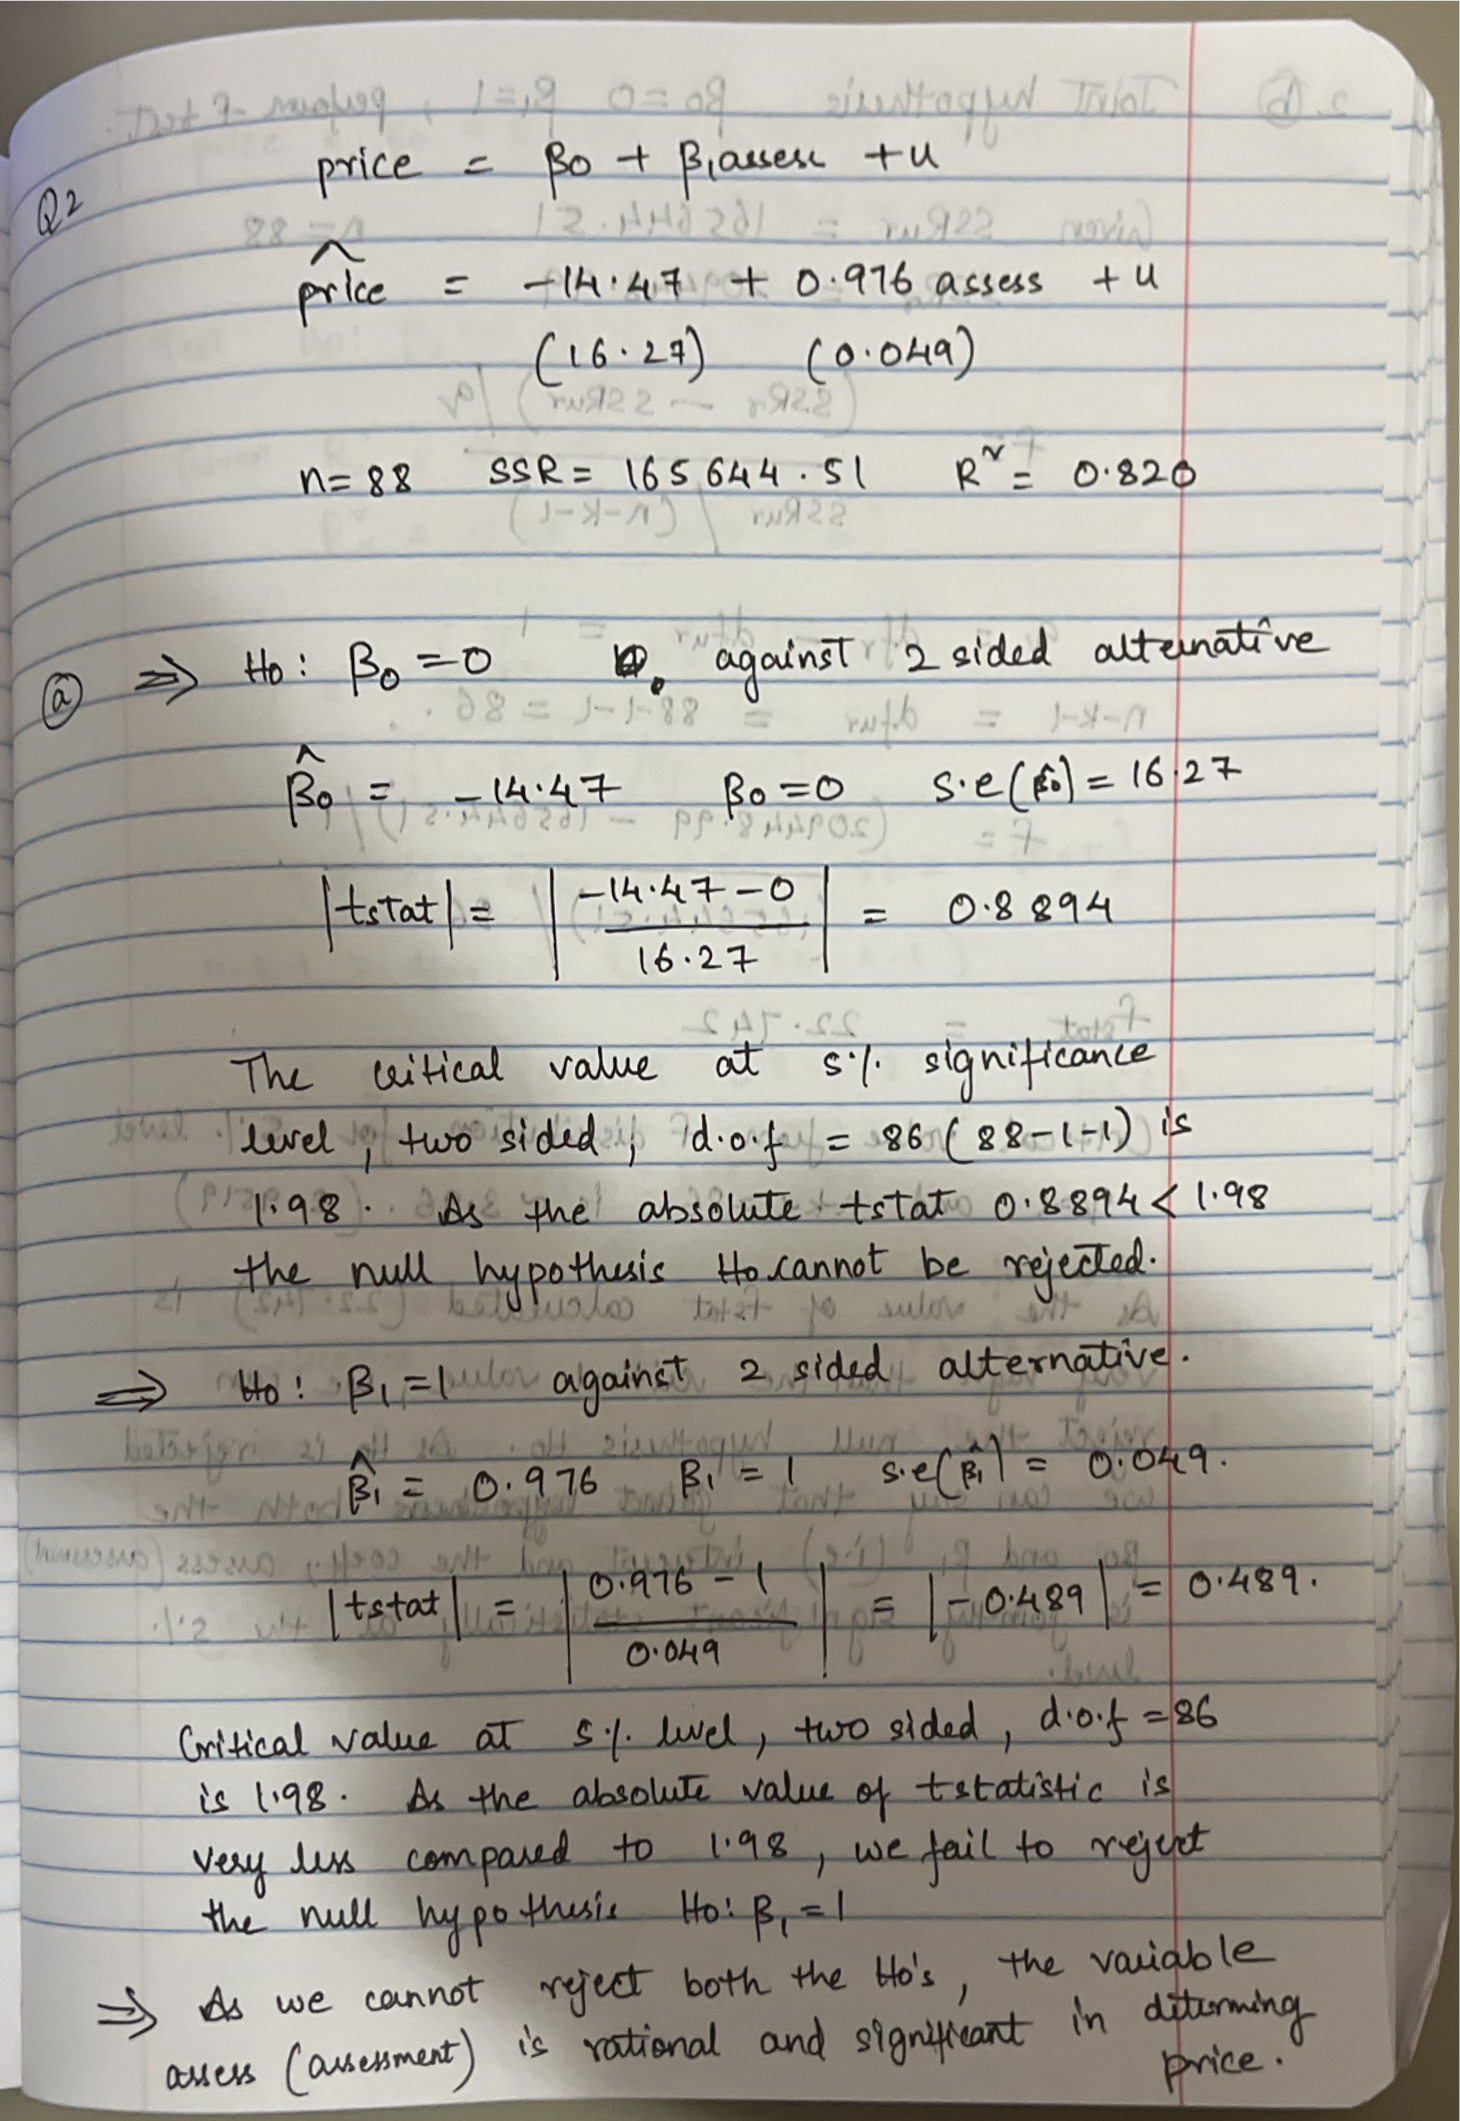 Q2
price = β0 + β1assess + u
price^ = -14.47 + 0.976 assess + u
(16.27) (0.049)
n=88 SSR = 165644.51 R² = 0.820
(a) ⇒ Ho: β0 = 0 against 2 sided alternative
β̂0 = -14.47 β0 = 0 s.e(β̂0) = 16.27
|tstat| = | (-14.47 - 0) / 16.27 | = 0.8894
The critical value at 5% significance
level, two sided, d.o.f = 86 (88-1-1) is
1.98. As the absolute tstat 0.8894 < 1.98
the null hypothesis Ho cannot be rejected.
⇒ Ho: β1 = 1 against 2 sided alternative.
β̂1 = 0.976 β1 = 1 s.e(β̂1) = 0.049.
|tstat| = | (0.976 - 1) / 0.049 | = |-0.489| = 0.489.
Critical value at 5% level, two sided, d.o.f = 86
is 1.98. As the absolute value of tstatistic is
very less compared to 1.98, we fail to reject
the null hypothesis Ho: β1 = 1
⇒ As we cannot reject both the Ho's, the variable
assess (assessment) is rational and significant in determing
price.